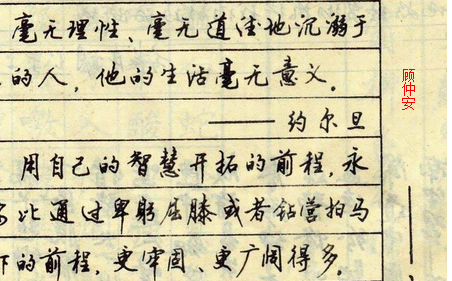 毫无理性、毫无道德地沉溺于
的人，他的生活毫无意义。
——约尔旦
用自己的智慧开拓的前程，永
比通过卑躬屈膝或者钻营拍马
的前程，更牢固、更广阔得多。
顾仲安